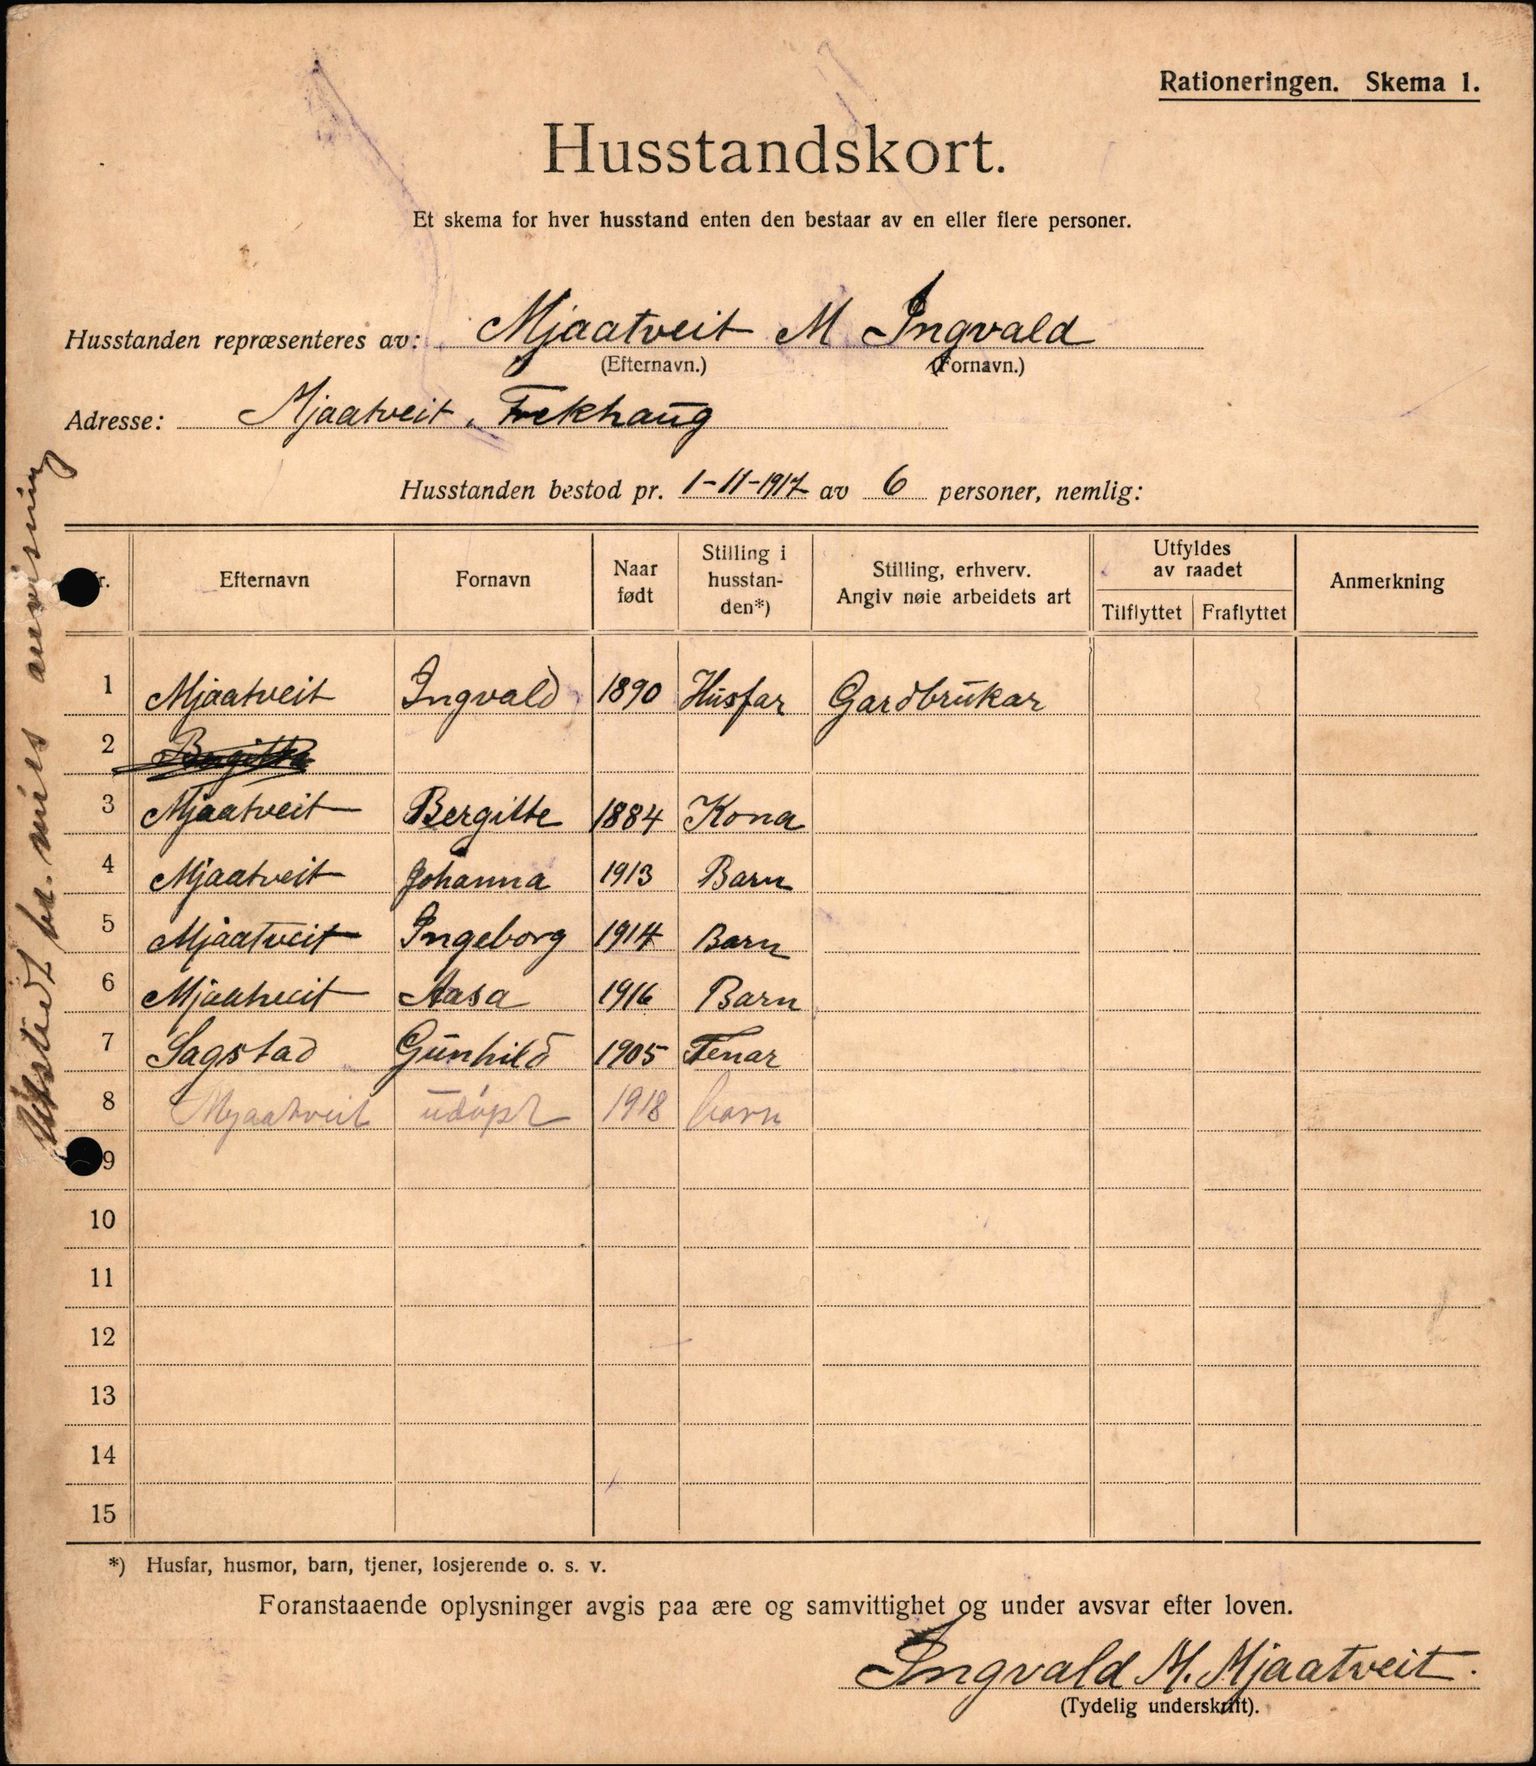 Rationeringen. Skema 1.
Husstandskort.
Et skema for hver husstand enten den bestaar av en eller flere personer.
Husstanden repræsenteres av: Mjaatveit M Ingvald
(Efternavn.) (Fornavn.)
Adresse: Mjaatveit, Frekhaug
Husstanden bestod pr. 1-11-1917 av 6 personer, nemlig:
Nr. Efternavn Fornavn Naar født Stilling i husstan-den*) Stilling, erhverv. Angiv nøie arbeidets art Utfyldes av raadet Tilflyttet Fraflyttet Anmerkning
1 Mjaatveit Ingvald 1890 Husfar Gardbrukar
2 Bergitte
3 Mjaatveit Bergitte 1884 Kona
4 Mjaatveit Johanna 1913 Barn
5 Mjaatveit Ingeborg 1914 Barn
6 Mjaatveit Aasa 1916 Barn
7 Sagstad Gunhild 1905 Tenar
8 Mjaatveit udöpt 1918 barn
9
10
11
12
13
14
15
*) Husfar, husmor, barn, tjener, losjerende o. s. v.
Foranstaaende oplysninger avgis paa ære og samvittighet og under avsvar efter loven.
Ingvald M. Mjaatveit.
(Tydelig underskrift).
Utsted br. mels anvisning